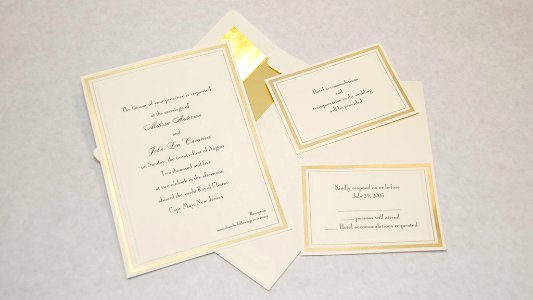 The honour of your presence is requested
at the marriage of
Melissa Anderson
and
John Leo Cavanass
on Sunday, the twenty-first of August
Two thousand and five
at two o'clock in the afternoon
aboard the yacht Royal Charm
Cape May, New Jersey
Reception
immediately following ceremony
Hotel accommodations
and
transportation to the wedding
will be provided
Kindly respond on or before
July 29, 2005
persons will attend
Hotel accommodations requested